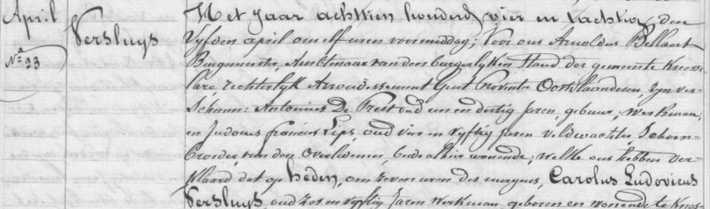 April
Nº 33
Versluys
Het jaar achttien honderd vier en tachtig, den
vyfden april om elf uren voormiddag; Voor ons Arnoldus Bellaert
Burgmeester, Ambtenaar van den burgerlyken stand der gemeente
lare, rechterlyk Arrondissement Gent Provintie Oostvlaanderen, zyn ver-
schenen: Antonius De Smet oud een en dertig Jaren, gebuur, werkman,
en Judocus francies Leps, oud vier en vyftig Jaren veldwachter Schoon-
broeder van den Overledenen, beide alhier wonende; welke ons hebben ver-
klaard dat op heden, om zeven uren des morgens, Carolus Ludovicus
Versluys, oud zes en vyftig Jaren Werkman, geboren en wonende te